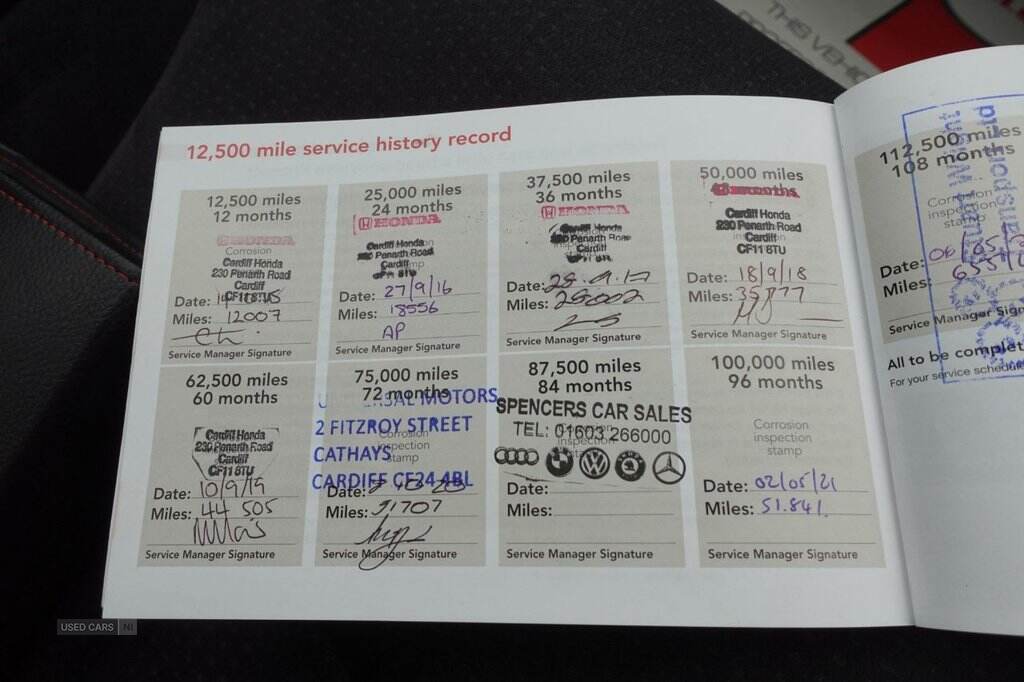 THIS VEHIC
12,500 mile service history record
12,500 miles
12 months
HONDA
Corrosion
Cardiff Honda
230 Penarth Road
Cardiff
CF11 8TU
Date:
Miles: 12007
Service Manager Signature
25,000 miles
24 months
HONDA
Cardiff Honda
230 Penarth Road
Cardiff
Date: 27/9/16
Miles: 18556
AP
Service Manager Signature
37,500 miles
36 months
HONDA
Cardiff Honda
230 Penarth Road
Cardiff
Date: 28.9.17
Miles:
Service Manager Signature
50,000 miles
48 months
Cardiff Honda
230 Penarth Road
Cardiff
CF11 8TU
Date: 18/9/18
Miles:
Service Manager Signature
62,500 miles
60 months
Cardiff Honda
230 Penarth Road
Cardiff
CF11 8TU
Date: 10/9/19
Miles: 44 505
Service Manager Signature
75,000 miles
72 months
MOTORS
2 FITZROY STREET
CATHAYS
CARDIFF CF24 4BL
Corrosion
inspection
stamp
Date:
Miles: 51707
Service Manager Signature
87,500 miles
84 months
SPENCERS CAR SALES
TEL: 01603 266000
Date:
Miles:
Service Manager Signature
100,000 miles
96 months
Corrosion
inspection
stamp
Date: 02/05/21
Miles: 51.841.
Service Manager Signature
112,500 miles
108 months
Corrosion
inspection
stamp
Date:
Miles:
Service Manager Sign
All to be complet
For your service schedu
USED CARS NI